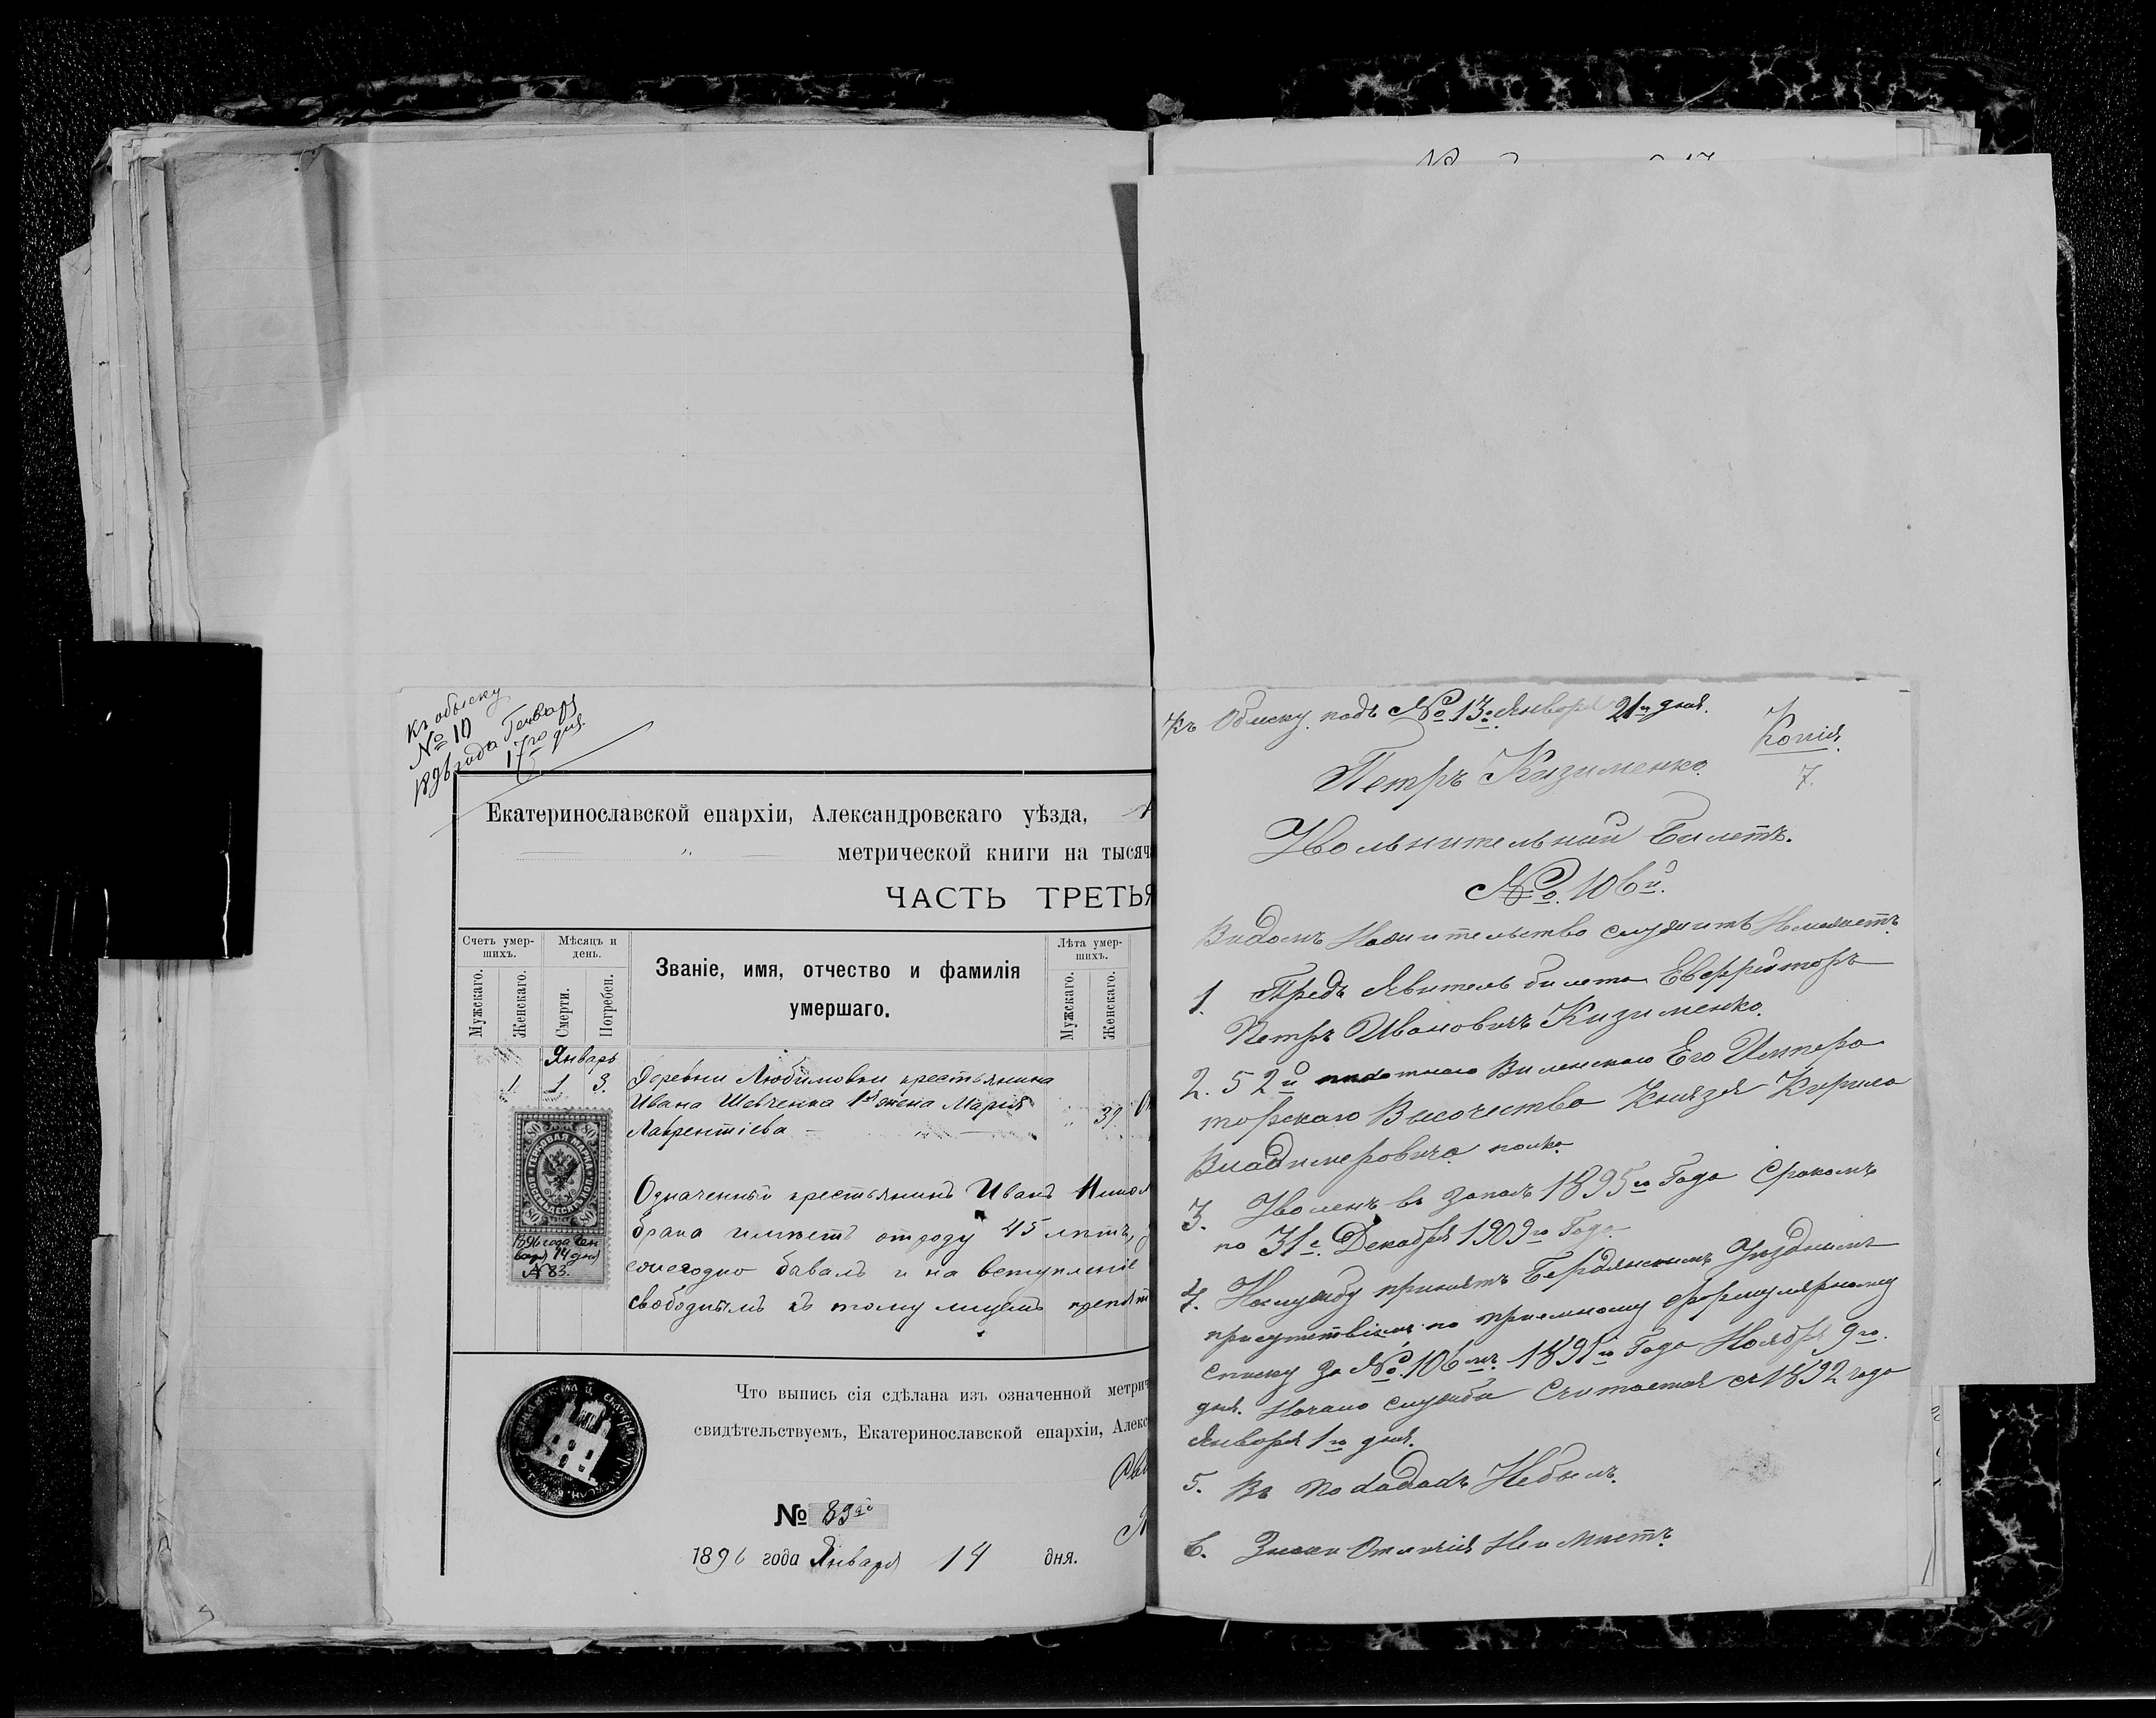 Къ обыску
№ 10
1896 года Генваря
17го дня.
Екатеринославской епархіи, Александровскаго уѣзда,
метрической книги на тысяч
ЧАСТЬ ТРЕТЬЯ
Счетъ умер-
шихъ.
Мужскаго.
Женскаго.
Мѣсяцъ и
день.
Смерти.
Погребен.
Званіе, имя, отчество и фамилія
умершаго.
Лѣта умер-
шихъ.
Мужскаго.
Женскаго.
Январь
1. 1. 3. Деревни Любимовки крестьянина
Ивана Шевченка 1ая жена Марія 39.
Лаврентіева
Означенный крестьянинъ Иванъ
брака имѣетъ отроду 45 лѣтъ,
ежегодно бывалъ и на вступленіе
свободнымъ къ тому лицемъ препят
80 80
ГЕРБОВАЯ МАРКА
ВОСЕМЬДЕСЯТЪ КОП.
80 80
1896 года Ген
варя 14 дня
№ 83.
Что выпись сія сдѣлана изъ означенной метрич
свидѣтельствуемъ, Екатеринославской епархіи, Алекс
№ 83
1896 года Января 14 дня.
Къ Обыску подъ № 13. Января 21го дня.
Копія
7.
Петръ Кизименко
Увольнительный Билетъ.
№ 106й.
Видомъ Нажительство служитъ Неможетъ
1. Предъ Явитель билета Евфрейторъ
Петръ Ивановичъ Кизименко.
2. 52й пѣхотнаго Виленскаго Его Импера
торскаго Высочества Князя Кирила
Владимеровича полка
3. Уволенъ въ запасъ 1895го Года Срокомъ
по 31е. Декабря 1909го Года
4. Наслужбу принятъ Бердянскимъ Уѣзднымъ
присутствіемъ по приемному формулярному
списку за №. 106мъ 1891го Года Ноября 9го.
дня. Начало службы Считается съ 1892 года
Января 1го дня.
5. Въ Походахъ Небылъ.
6. Знаки Отличія Не имѣетъ.